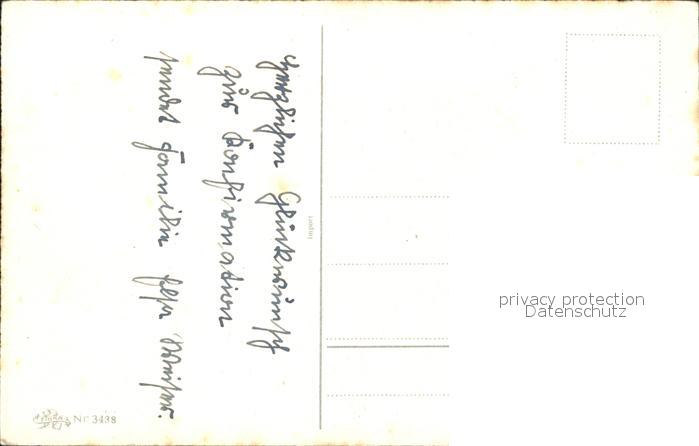 Herzlichen Glückwunsch
zur Konfirmation
sendet Familie
Import
Nr 3438
privacy protection
Datenschutz